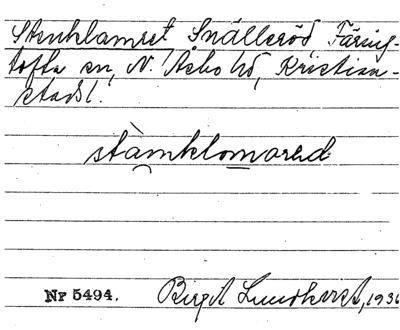 Stenklamret Snälleröd, Färing-
tofta sn, N. Åsbo hd, Kristian-
stads l.
stàmklomared
Nr 5494. Birgit Lundkvist, 1930